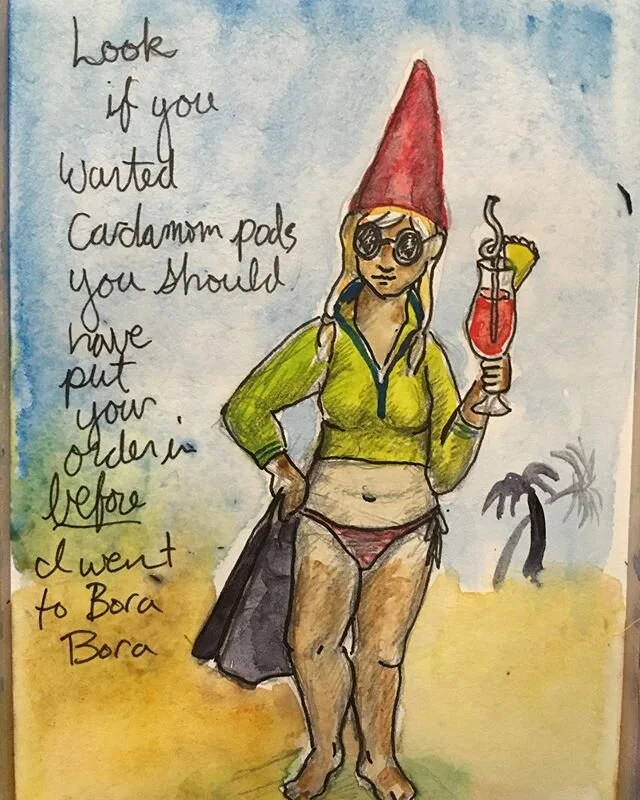 Look
if you
Wanted
Cardamom pods
you should
have
put
your
order in
before
I went
to Bora
Bora